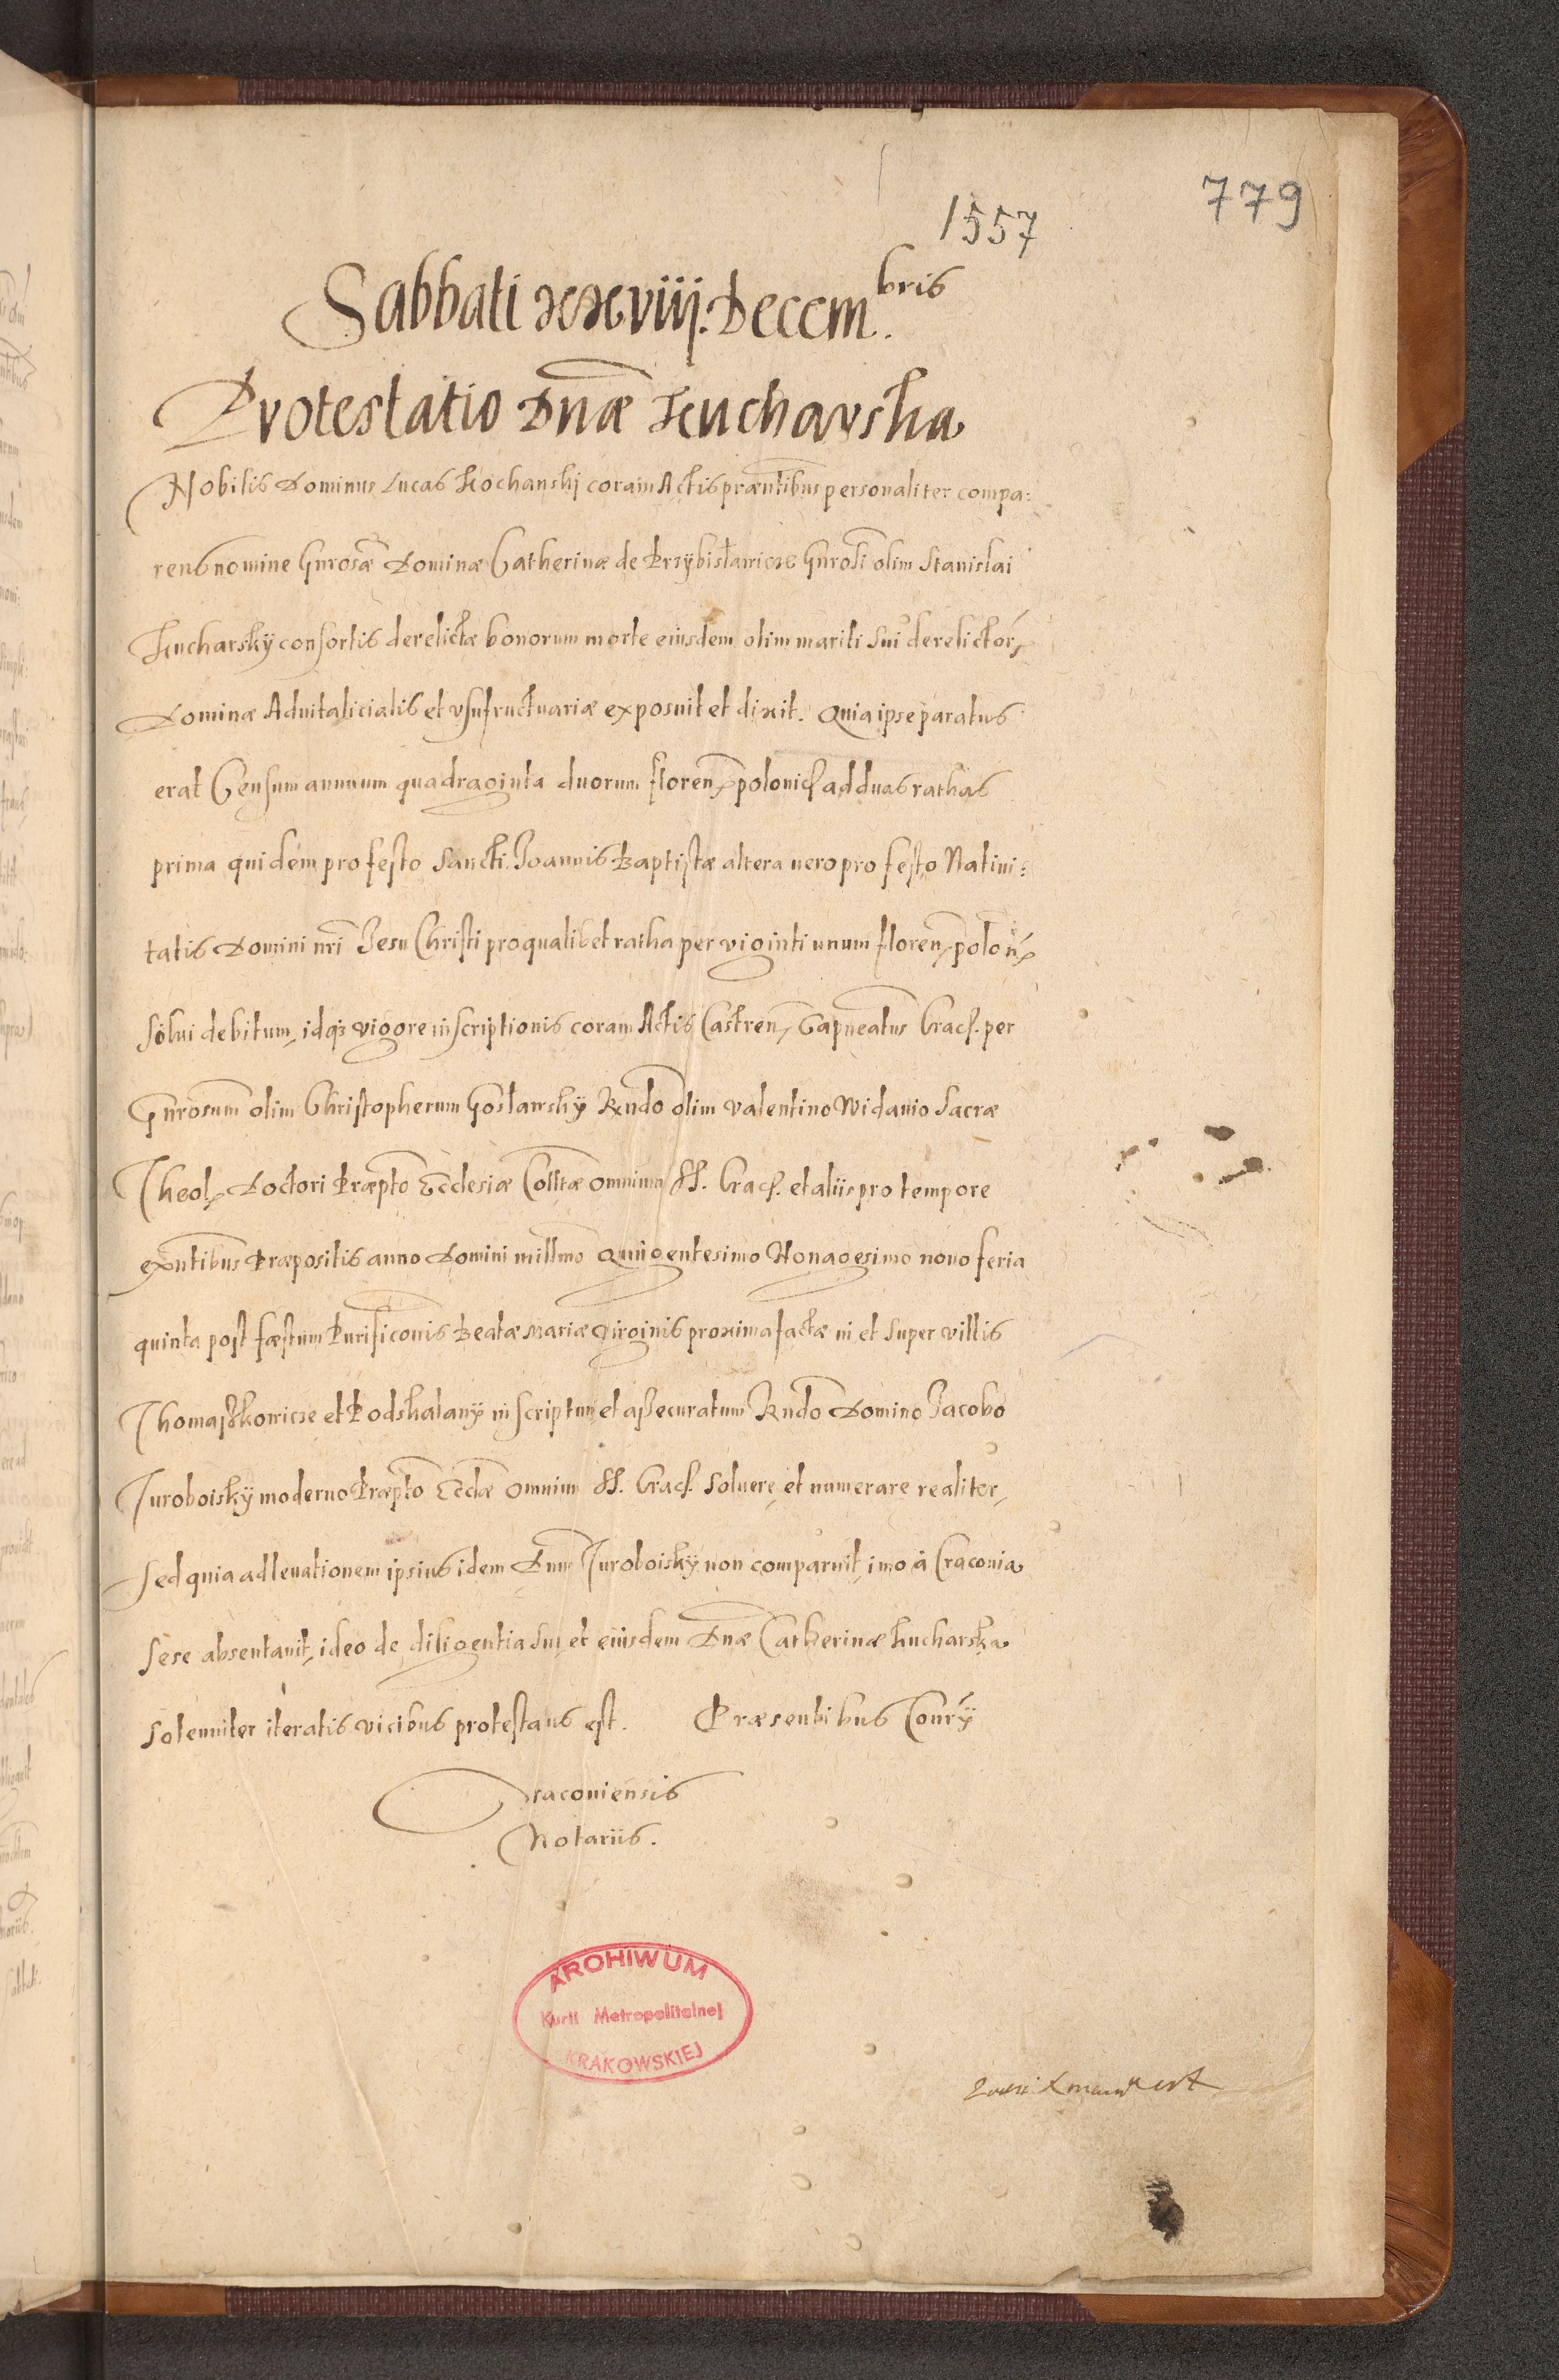 779
1557
Sabbati xxviij. Decem.bris
Protestatio Dnæ Kucharska
Nobilis Dominus Lucas Kochanskj coram Actis præntibus personaliter compa:
rens nomine Gnrosæ Dominæ Catherinæ de Przÿbislawicze Gnrosi olim Stanislai
Kucharskÿ consortis derelictæ bonorum morte eiusdem olim mariti sui derelictor
Dominæ Aduitalicialis et vsufructuariæ exposuit et dixit. Quia ipse paratus
erat Censum annuum quadraginta duorum floren polonical ad duas rathas
prima quidem pro festo Sancti Joannis Baptistæ altera uero pro festo Natiui:
tatis Domini nri Jesu Christi pro qualibet ratha per viginti unum floren polon
solui debitum, idq3 vigore inscriptionis coram Actis Castren Capneatus Crac. per
Gnrosum olim Christopherum Goslawskÿ Rndo olim Valentino Widauio Sacræ
Theol Doctori Præpto Ecclesiæ Colltæ omnium SS. Crac. et aliis pro tempore
exntibus Præpositis anno Domini millmo Quingentesimo Nonagesimo nono feria
quinta post fæstum Purificonis Beatæ Mariæ Virginis proxima factæ in et super villis
Thomaszkowicze et Podskalanÿ inscriptum et assecuratum Rndo Domino Jacobo
Juroboiskÿ moderno Præpto Ecclæ omnium SS. Crac. soluere, et numerare realiter,
Sed quia ad leuationem ipsius idem Dnus Juroboiskÿ non comparuit, imo à Craconia
sese absentauit, ideo de diligentia sui, et eiusdem Dnæ Catherinæ Kucharska
solemniter iteratis vicibus protestatus est. Præsentibus Conrÿ
Craconiensis
Notariis.
ARCHIWUM
Kurii Metropolitalnej
KRAKOWSKIEJ